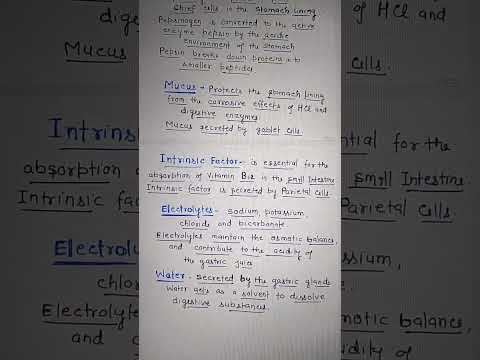 Chief cells in the stomach lining
Pepsinogen is converted to the active
enzyme pepsin by the acidic
environment of the stomach
Pepsin breaks down proteins into
smaller peptides
Mucus - Protects the stomach lining
from the corrosive effects of HCl and
digestive enzymes
Mucus secreted by goblet cells.
Intrinsic Factor - is essential for the
absorption of Vitamin B12 in the small Intestine
Intrinsic factor is secreted by Parietal cells.
Electrolytes - sodium, potassium,
chloride and bicarbonate
Electrolytes maintain the osmotic balance,
and contribute to the acidity of
the gastric juice
Water - secreted by the gastric glands
Water acts as a solvent to dissolve
digestive substances.